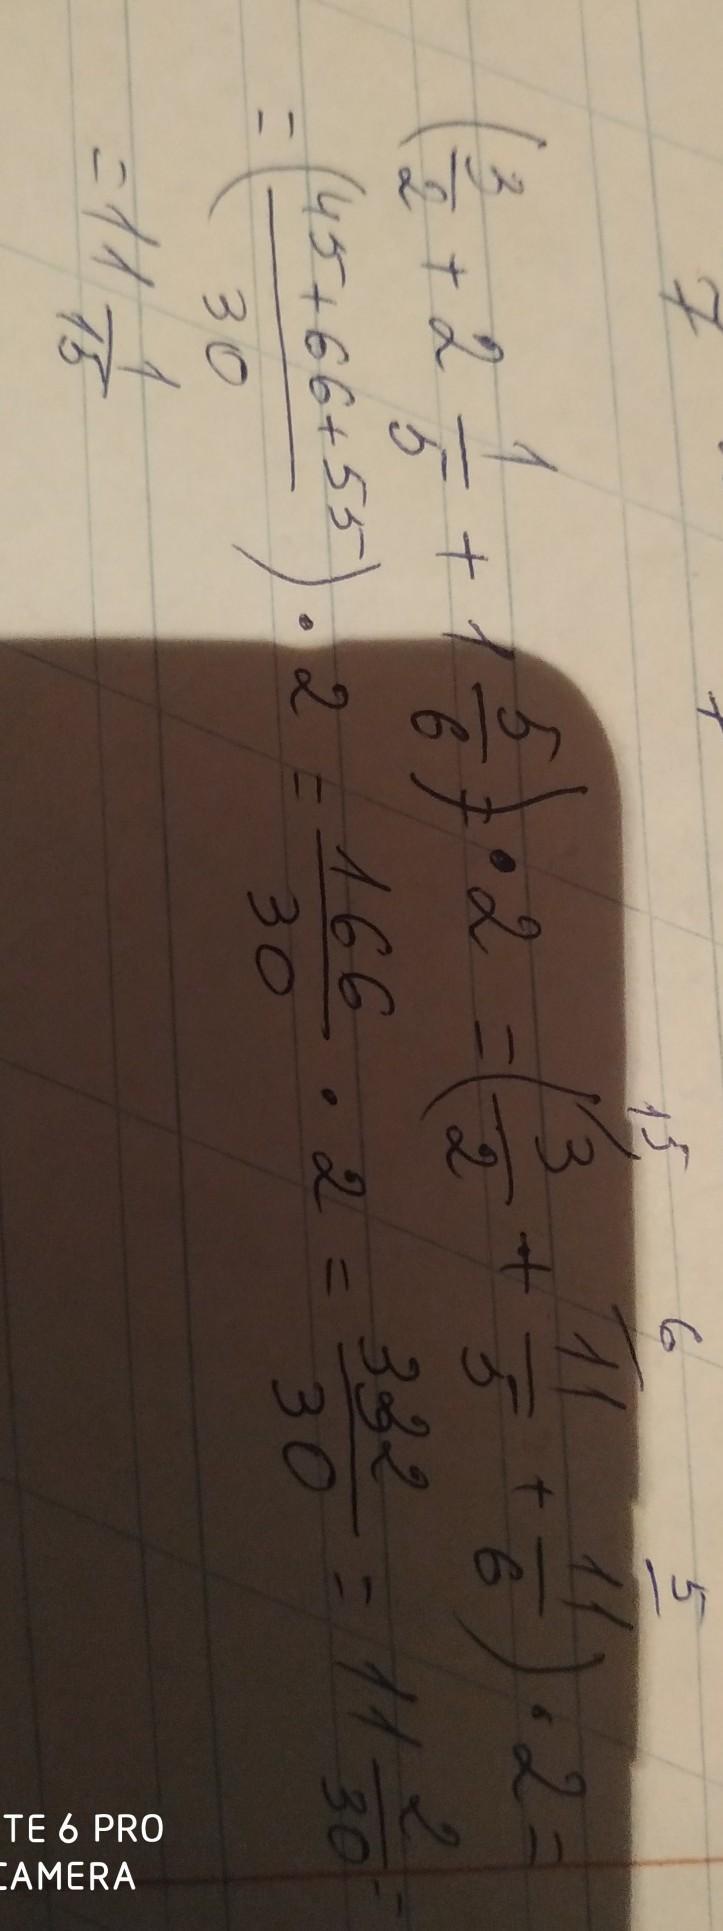 15 6 5
(3/2 + 2 1/5 + 1 5/6) · 2 = (3/2 + 11/5 + 11/6) · 2 =
= (45+66+55/30) · 2 = 166/30 · 2 = 332/30 = 11 2/30 =
= 11 1/15
TE 6 PRO
CAMERA